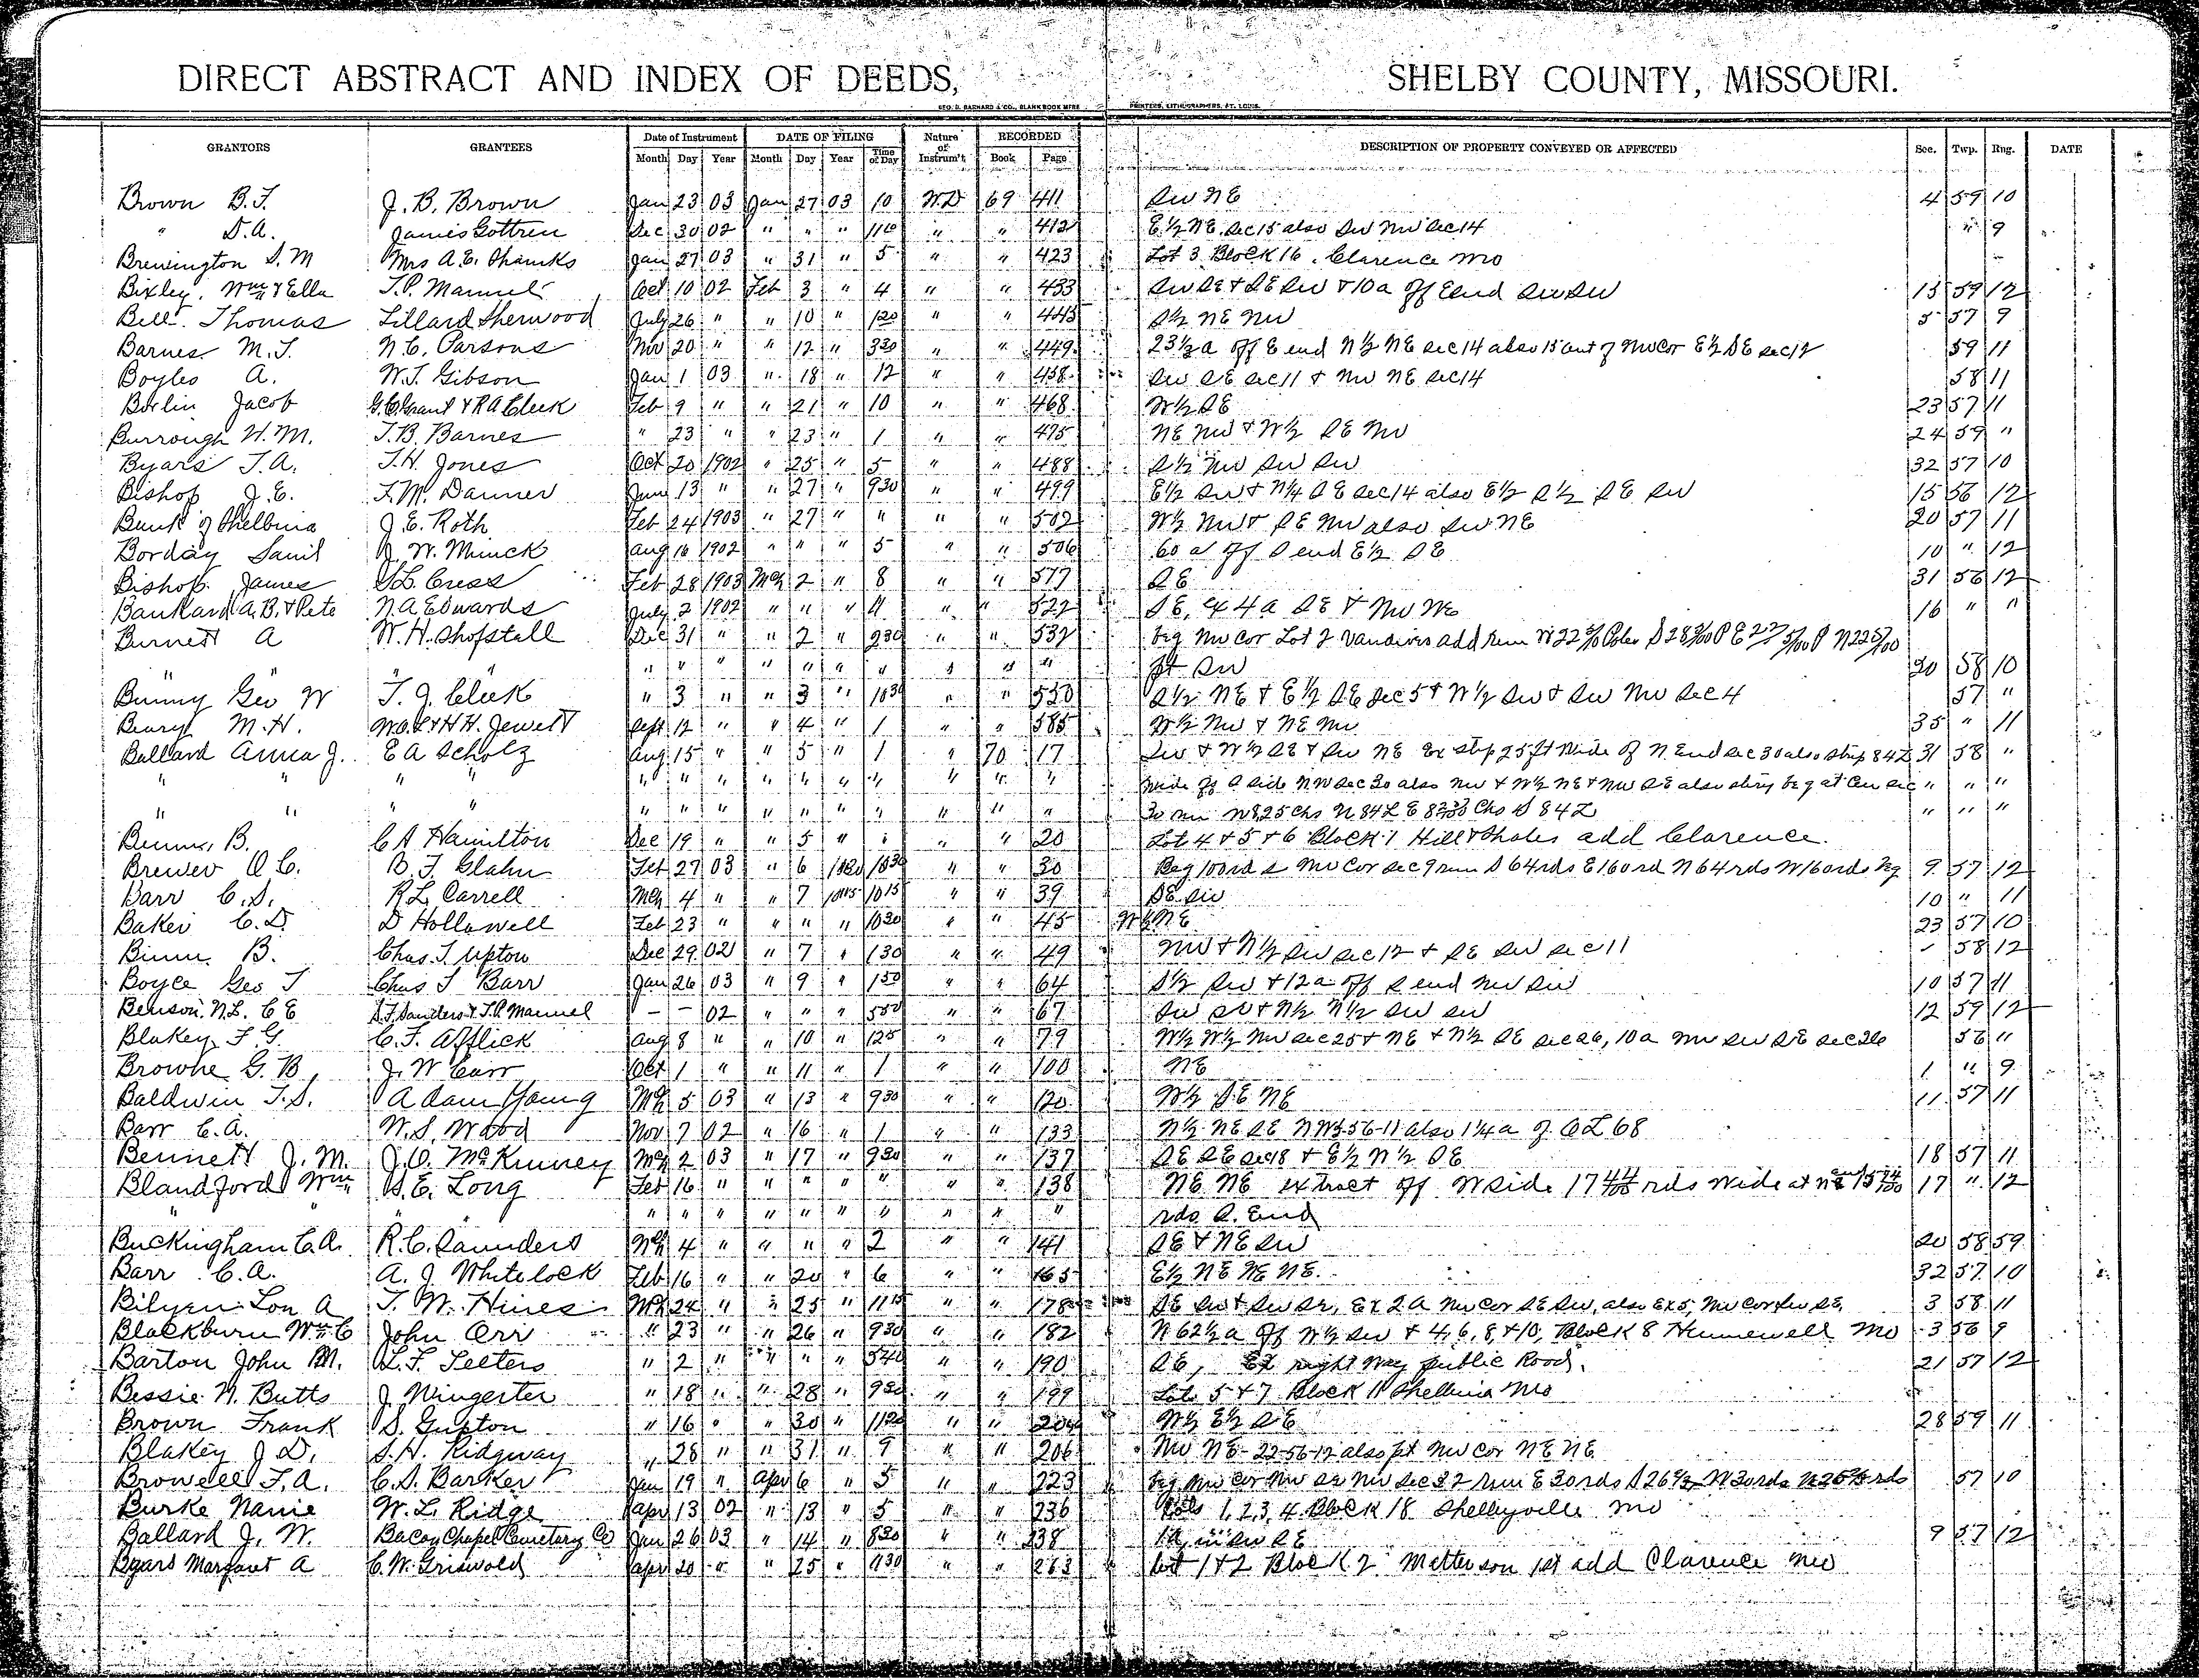 DIRECT ABSTRACT AND INDEX OF DEEDS, SHELBY COUNTY, MISSOURI.
GEO. D. BARNARD & CO., BLANK BOOK MFRS PRINTERS, LITHOGRAPHERS, ST. LOUIS.
GRANTORS GRANTEES Date of Instrument DATE OF FILING Nature of Instrum't RECORDED DESCRIPTION OF PROPERTY CONVEYED OR AFFECTED Sec. Twp. Rng. DATE
Month Day Year Month Day Year Time of Day Book Page
Brown B.F. J. B. Brown Jan 23 03 Jan 27 03 10 W.D 69 411 SW NE 4 59 10
" D.A. James Gottren Dec 30 02 " " " " " 412 E½ NE. Sec 15 also SW NW Sec 14 " 9
Brewington S. M Mrs A. E. Shanks Jan 27 03 " 31 " 5 " " 423 Lot 3 Block 16. Clarence Mo
Bixley, Wm & Ella T. P. Manuel Oct 10 02 Feb 3 " 4 " " 433 SW SE & SE SW & 10a Off E end SW SW 15 59 12
Bell Thomas Lillard Sherwood July 26 " " 10 " 120 " " 445 S½ NE NW 5 57 9
Barnes M. T. N. C. Parsons Nov 20 " " 12 " 330 " " 449 23½ a off E end N½ NE Sec 14 also 15a out of NW cor E½ SE Sec 12 59 11
Boyles A. W. T. Gibson Jan 1 03 " 18 " 12 " " 458 SW SE Sec 11 & NW NE Sec 14 58 11
Borlin Jacob G. C. Grant & R A Cleek Feb 9 " " 21 " 10 " " 468 W½ SE 23 57 11
Burrough H. M. T. B. Barnes " 23 " " 23 " 1 " " 475 NE NW & W½ SE NW 24 59 "
Byars T. A. T. H. Jones Oct 20 1902 " 25 " 5 " " 488 S½ NW SW SW 32 57 10
Bishop J. E. F. M. Danner June 13 " " 27 " 930 " " 499 E½ SW & N¼ SE Sec 14 also E½ S½ SE SW 15 56 12
Bank of Shelbina J. E. Roth Feb 24 1903 " 27 " " " " 502 W½ NW & SE NW also SW NE 20 57 11
Borday Saml J. W. Minck Aug 16 1902 " " " 5 " " 506 60 a off S end E½ SE 10 " 12
Bishop James S L. Cress Feb 28 1903 Mch 2 " 8 " " 517 SE 31 56 12
Baukard A. B. & Pete N. A Edwards July 2 1902 " " " 4 " " 522 SE, ex 4 a SE & NW NE 16 " "
Burnett A W. H. Shofstall Dec 31 " " 2 " 230 " " 532 beg NW cor Lot 2 Vandivers add run
" " " " " " " " " " " " pt SW 20 58 10
Bunny Geo W T. J. Cleek " 3 " " 3 " 1030 " " 550 S½ NE & E½ SE Sec 5 & W½ SW & SW NW Sec 4 57 "
Beury M. H. W. O. L & H H. Jewett Sept 12 " " 4 " 1 " " 585 W½ NW & NE NW 35 " 11
Ballard Anna J. E A Scholz Aug 15 " " 5 " 1 " 70 17 SW & W½ SE & SW NE Ex strip 25 ft wide of N End Sec 30 also strip 84 L 31 58 "
" " " " " " " " " " " " " " " wide of S side NW Sec 30 also NW & W½ NE & NW SE also strip beg at Cen Sec " " "
" " " " " " " " " " " " " " " 30 run W 825 Chs N 84 L E Chs S 84 L " " "
Bunn. B. C A Hamilton Dec 19 " " 5 " " " 20 Lot 4 & 5 & 6 Block 1 Hill & Shales add Clarence.
Brewer O C. B. F. Glahn Feb 27 03 " 6 1030 " " 30 Beg 100rd S NW Cor Sec 9 run S 64rds E 160rd N 64rds W 160rds beg 9 57 12
Barr C. S. R L Carrell Mch 4 " " 7 1015 " " 39 SE SW 10 " 11
Baker C. D. D Hollowell Feb 23 " " " " 1030 " " 45 W½ NE 23 57 10
Binn. B. Chas. T. Upton Dec 29 02 " 7 " 130 " " 49 NW & N½ SW Sec 12 & SE SW Sec 11 58 12
Boyce Geo T Chas T Barr Jan 26 03 " 9 " 150 " " 64 S½ SW & 12 a off S end NW SW 10 57 11
Benson N. L. C E S. F. Saunders & T. P. Manuel — — 02 " " " 550 " " 67 SW SW & N½ N½ SW SW 12 59 12
Blakey F. G. C. F. Afflick Aug 8 " " 10 " 125 " " 79 W½ W½ NW Sec 25 & NE & N½ SE Sec 26, 10a NW SW SE Sec 26 56 "
Browne G. B J. W Carr Oct 1 " " 11 " 1 " " 100 NE 1 " 9
Baldwin T. S. Adam Young Mch 5 03 " 13 " 930 " " 120 W½ SE NE 11 57 11
Barr C. A. W. S. Wood Nov 7 02 " 16 " 1 " " 133 N½ NE SE 56-11 also 1¼ a of OL 68
Bennett J. M. J. O. McKinney Mch 2 03 " 17 " 930 " " 137 SE SE Sec 18 & E½ N½ SE 18 57 11
Blandford Wm S. E. Long Feb 16 " " " " " " " 138 NE NE ex tract off W side 17 44/100 rds wide at N E 17 " 12
" " " " " " " " " " " " " rds S. End
Buckingham C. A. R. C. Saunders Mch 4 " " " " 2 " " 141 SE & NE SW 20 58 59
Barr C. A. A. J Whitelock Feb 16 " " 20 " 6 " " 165 E½ NE NE NE. 32 57 10
Bilyeu Lon A T. W. Hines Mch 24 " " 25 " 1115 " " 178 SE SW & SW Sr, Ex 2 A NW Cor SE SW, also Ex 5, NW Cor SW SE, 3 58 11
Blackburn Wm C John Orr " 23 " " 26 " 930 " " 182 N 62½ a off W½ SW & 4, 6, 8, & 10, Block 8 Hunnewell Mo 3 56 9
Barton John M. L. F. Teeters " 2 " " " " 540 " " 190 SE, Ex right way public Road. 21 57 12
Bessie N. Butts J Wingerter " 18 " " 28 " 930 " " 199 Lots 5 & 7 Block 11 Shelbina Mo
Brown Frank S. Gupton " 16 " " 30 " 1120 " " 204 W½ E½ SE 28 59 11
Blakey J D. S. H. Ridgway " 28 " " 31 " 9 " " 206 NW NE - 22-56-12 also pt NW cor NE NE
Browell F. A. C. S. Barker Jan 19 " Apr 6 " 5 " " 223 beg NW cor NW SE NW Sec 32 run E 30rds S 26⅔ W 30rds N 26⅔ rds 57 10
Burke Nanie W. L. Ridge Apr 13 02 " 13 " 5 " " 236 Lots 1, 2, 3, 4 Block 18 Shelbyville Mo
Ballard J. W. Bacon Chapel Cemetary Co Jan 26 03 " 14 " 830 " " 238 1A in SW SE 9 57 12
Byars Margaret A C. W. Griswold Apr 20 " " 25 " 1130 " " 263 Lot 1 & 2 Block 2 Matterson 1st add Clarence Mo